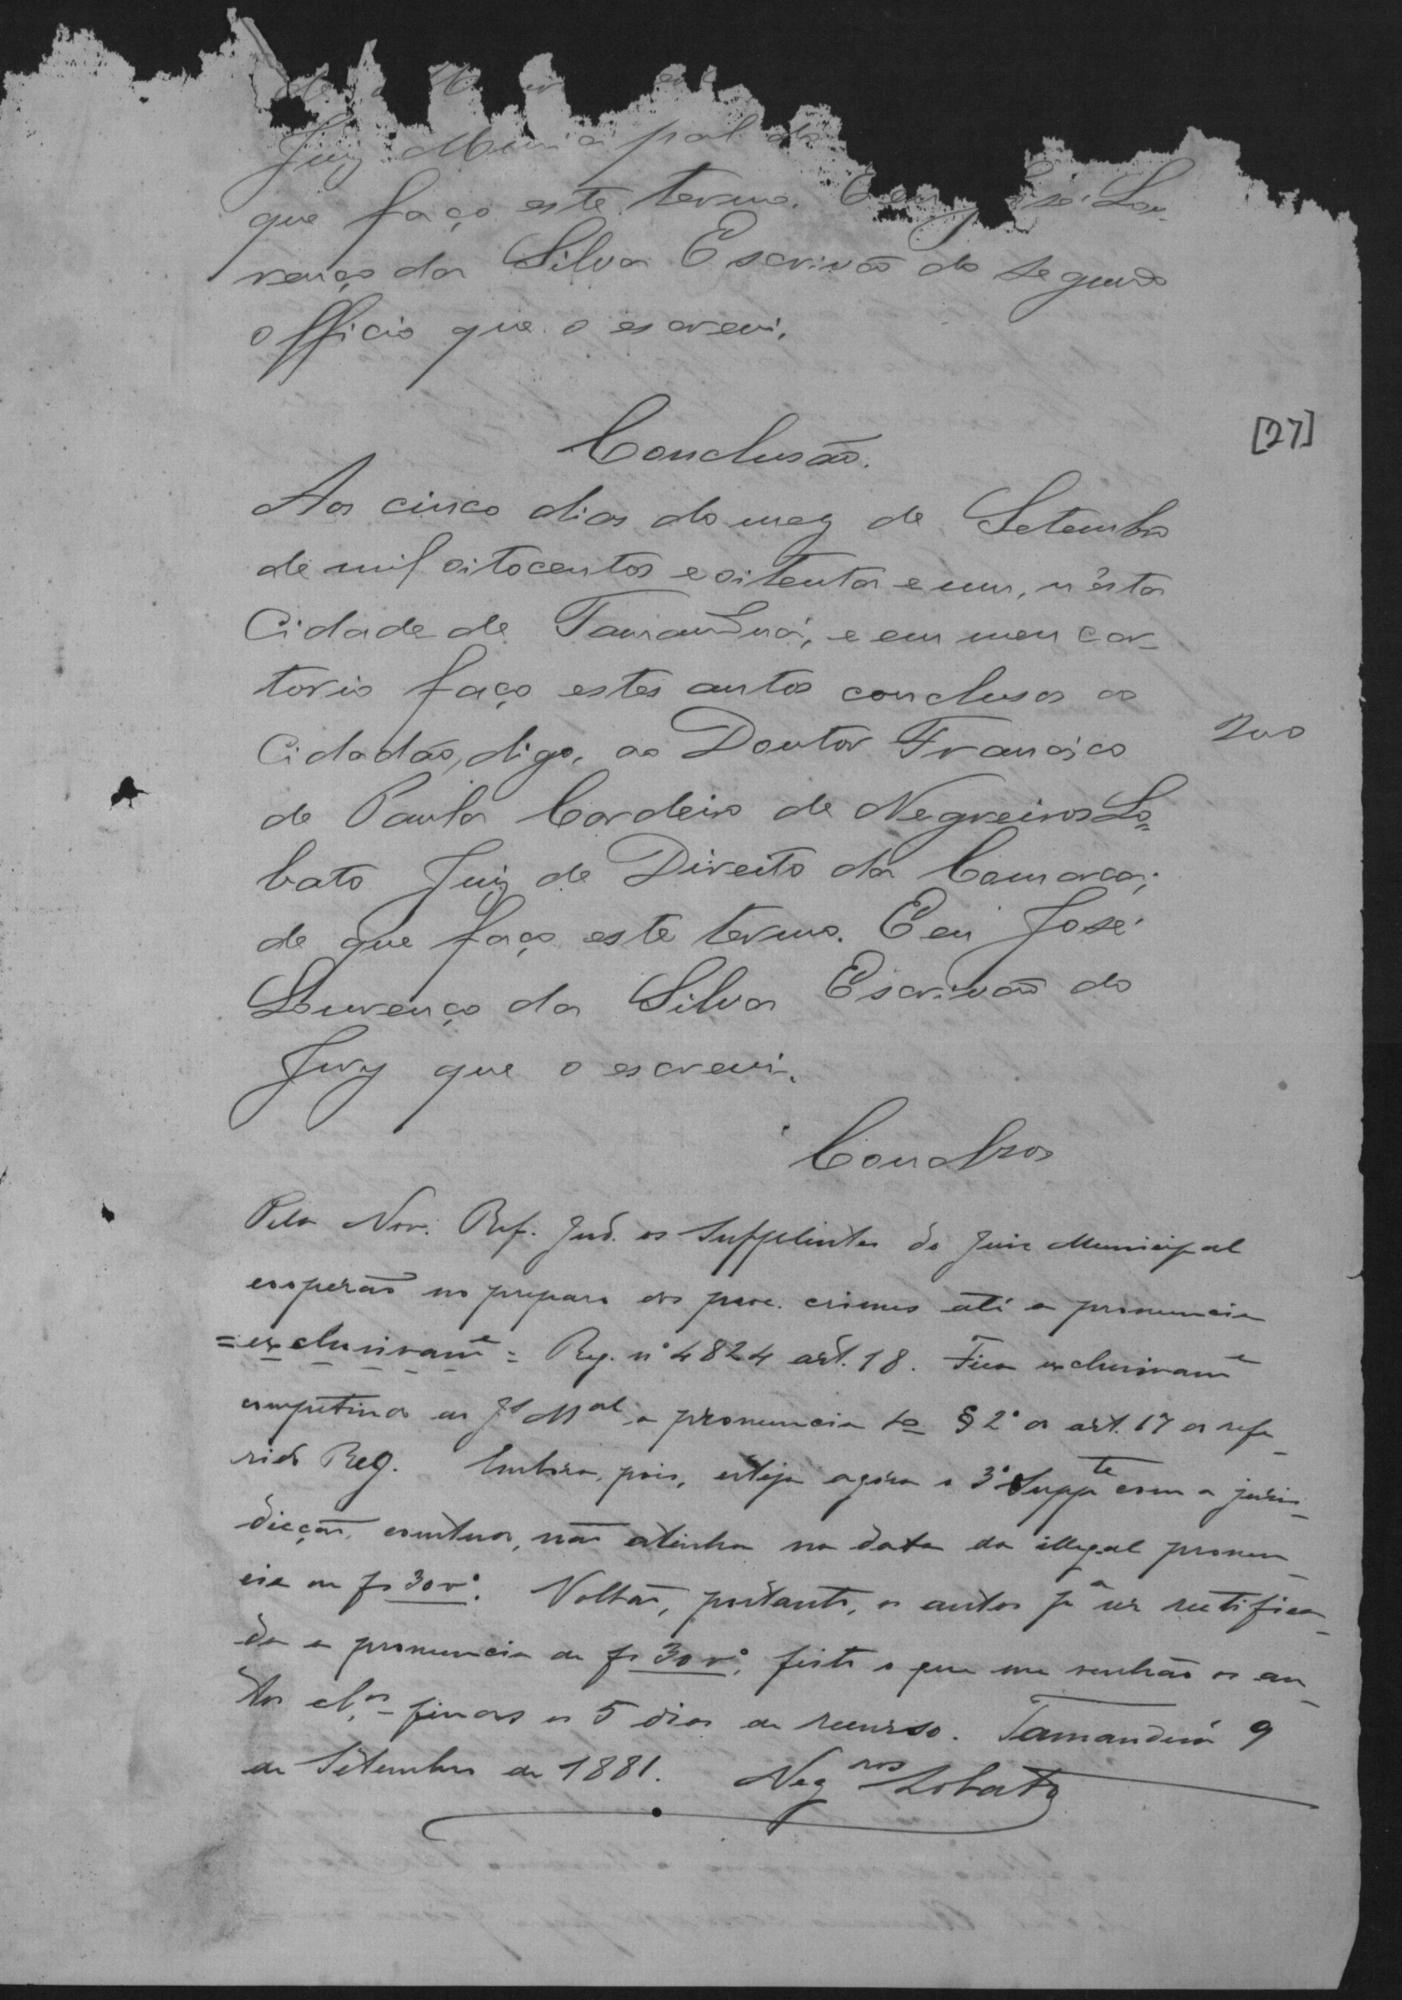 Juiz Municipal do
que faço este termo. E eu José Lou-
renço da Silva Escrivão do segundo
officio que o escrevi.
Conclusão.
[27]
Aos cinco dias do mez de Setembro
de mil oitocentos e oitenta e um, n'esta
Cidade de Tamanduá, e em meu car-
torio faço estes autos conclusos ao
Cidadão, digo, ao Doutor Francisco
de Paula Cordeiro de Negreiros Lo-
bato Juiz de Direito da Comarca;
de que faço este termo. E eu José
Lourenço da Silva Escrivão do
Jury que o escrevi.
Conclusos
Pela Nov. Ref. Jud. os supplentes do Juiz Municipal
cooperão no preparo dos proc. crimes até a pronuncia
=exclusivamᵉ= Reg. nº 4824 art. 18. Fica exclusivamᵉ
competindo ao Jˢ Mᵃˡ a pronuncia § 2º do art. 17 do refe-
rido Reg. Embora, pois, esteja agora o 3º Suppᵗᵉ com a juris-
dicção, comtudo, não a tinha na data da illegal pronun-
cia de fs 30 vº. Voltão, portanto, os autos pª ser rectifica-
da a pronuncia de fs 30 vº, feito o que me venhão os au-
tos cl.ᵒˢ findos os 5 dias de recurso. Tamanduá 9
de Setembro de 1881. Negʳᵒˢ Lobato